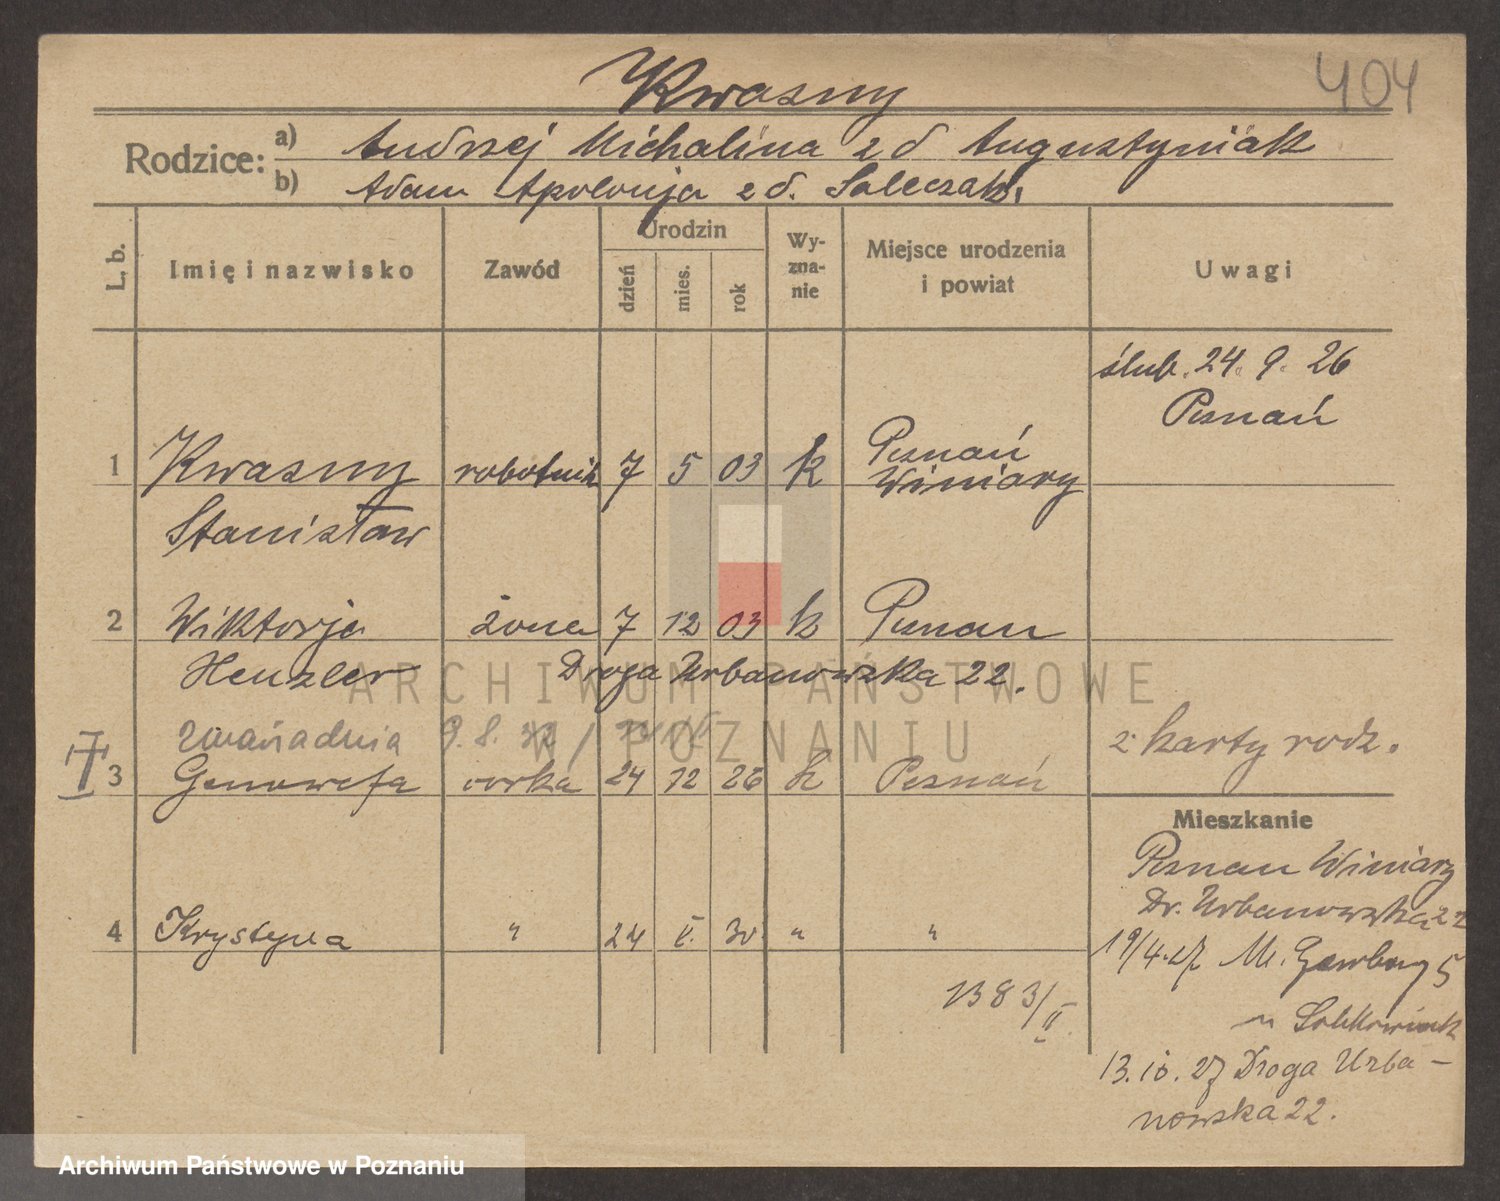 Kwasny
404
Rodzice:
a) Andrzej Michalina z d Augustyniak
b) Adam Apolonja z d.
L. b.
Imię i nazwisko
Zawód
Urodzin
dzień
mies.
rok
Wy-
zna-
nie
Miejsce urodzenia
i powiat
Uwagi
ślub. 24. 9. 26
Poznań
1 Kwasny robotnik 7 5 03 k Poznań
Winiary
Stanisław
2 Wiktorja żona 7 12 03 k Poznan
Henzler Droga Urbanowska 22.
9. 8.
2 karty rodz.
3 Genowefa corka 24 12 26 k Poznań
Mieszkanie
Poznan Winiary
Dr. Urbanowska 22
4 Krystyna " 24 V. 30 " "
19/4.27 M. Garbary 5
1383/II
13. 10. 27 Droga Urba-
nowska 22.
ARCHIWUM PAŃSTWOWE
W POZNANIU
Archiwum Państwowe w Poznaniu